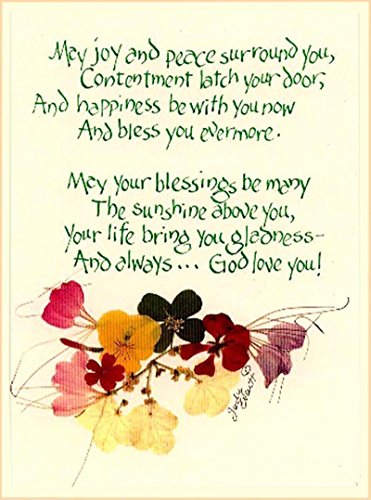 May joy and peace surround you,
Contentment latch your door,
And happiness be with you now
And bless you evermore.
May your blessings be many
The sunshine above you,
Your life bring you gladness-
And always... God love you!
©
Judy